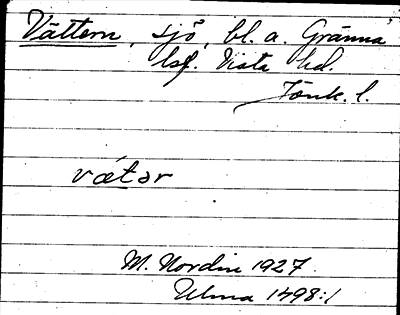 Vättern, sjö, bl. a. Gränna
lsf. Vista hd.
Jönk. l.
vǽtər
M. Nordin 1927.
Ulma 1498:1